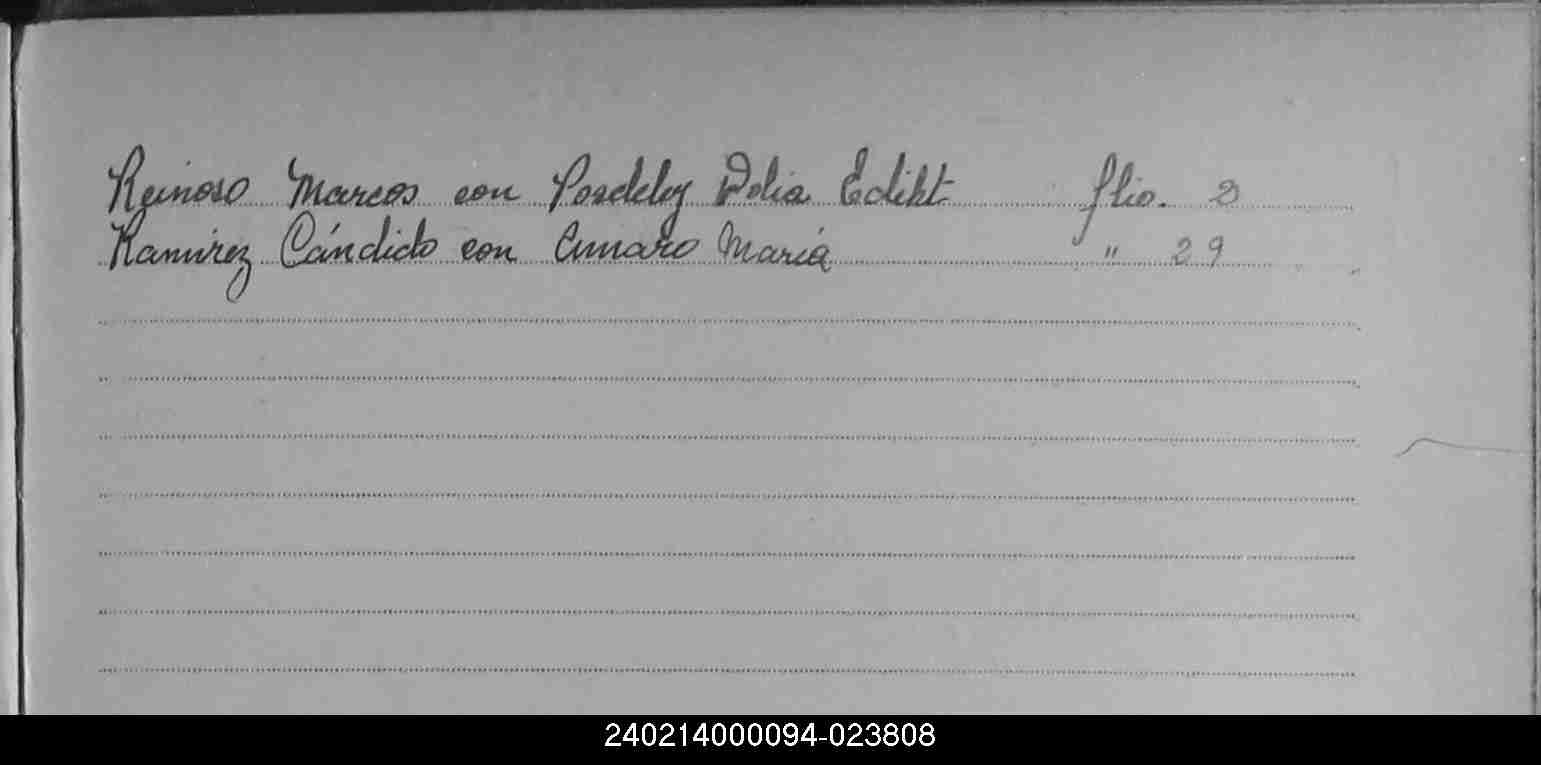 Reinoso Marcos con Posdeley Delia Ediht flio. 2
Ramírez Cándido con Amaro María " 29
240214000094-023808